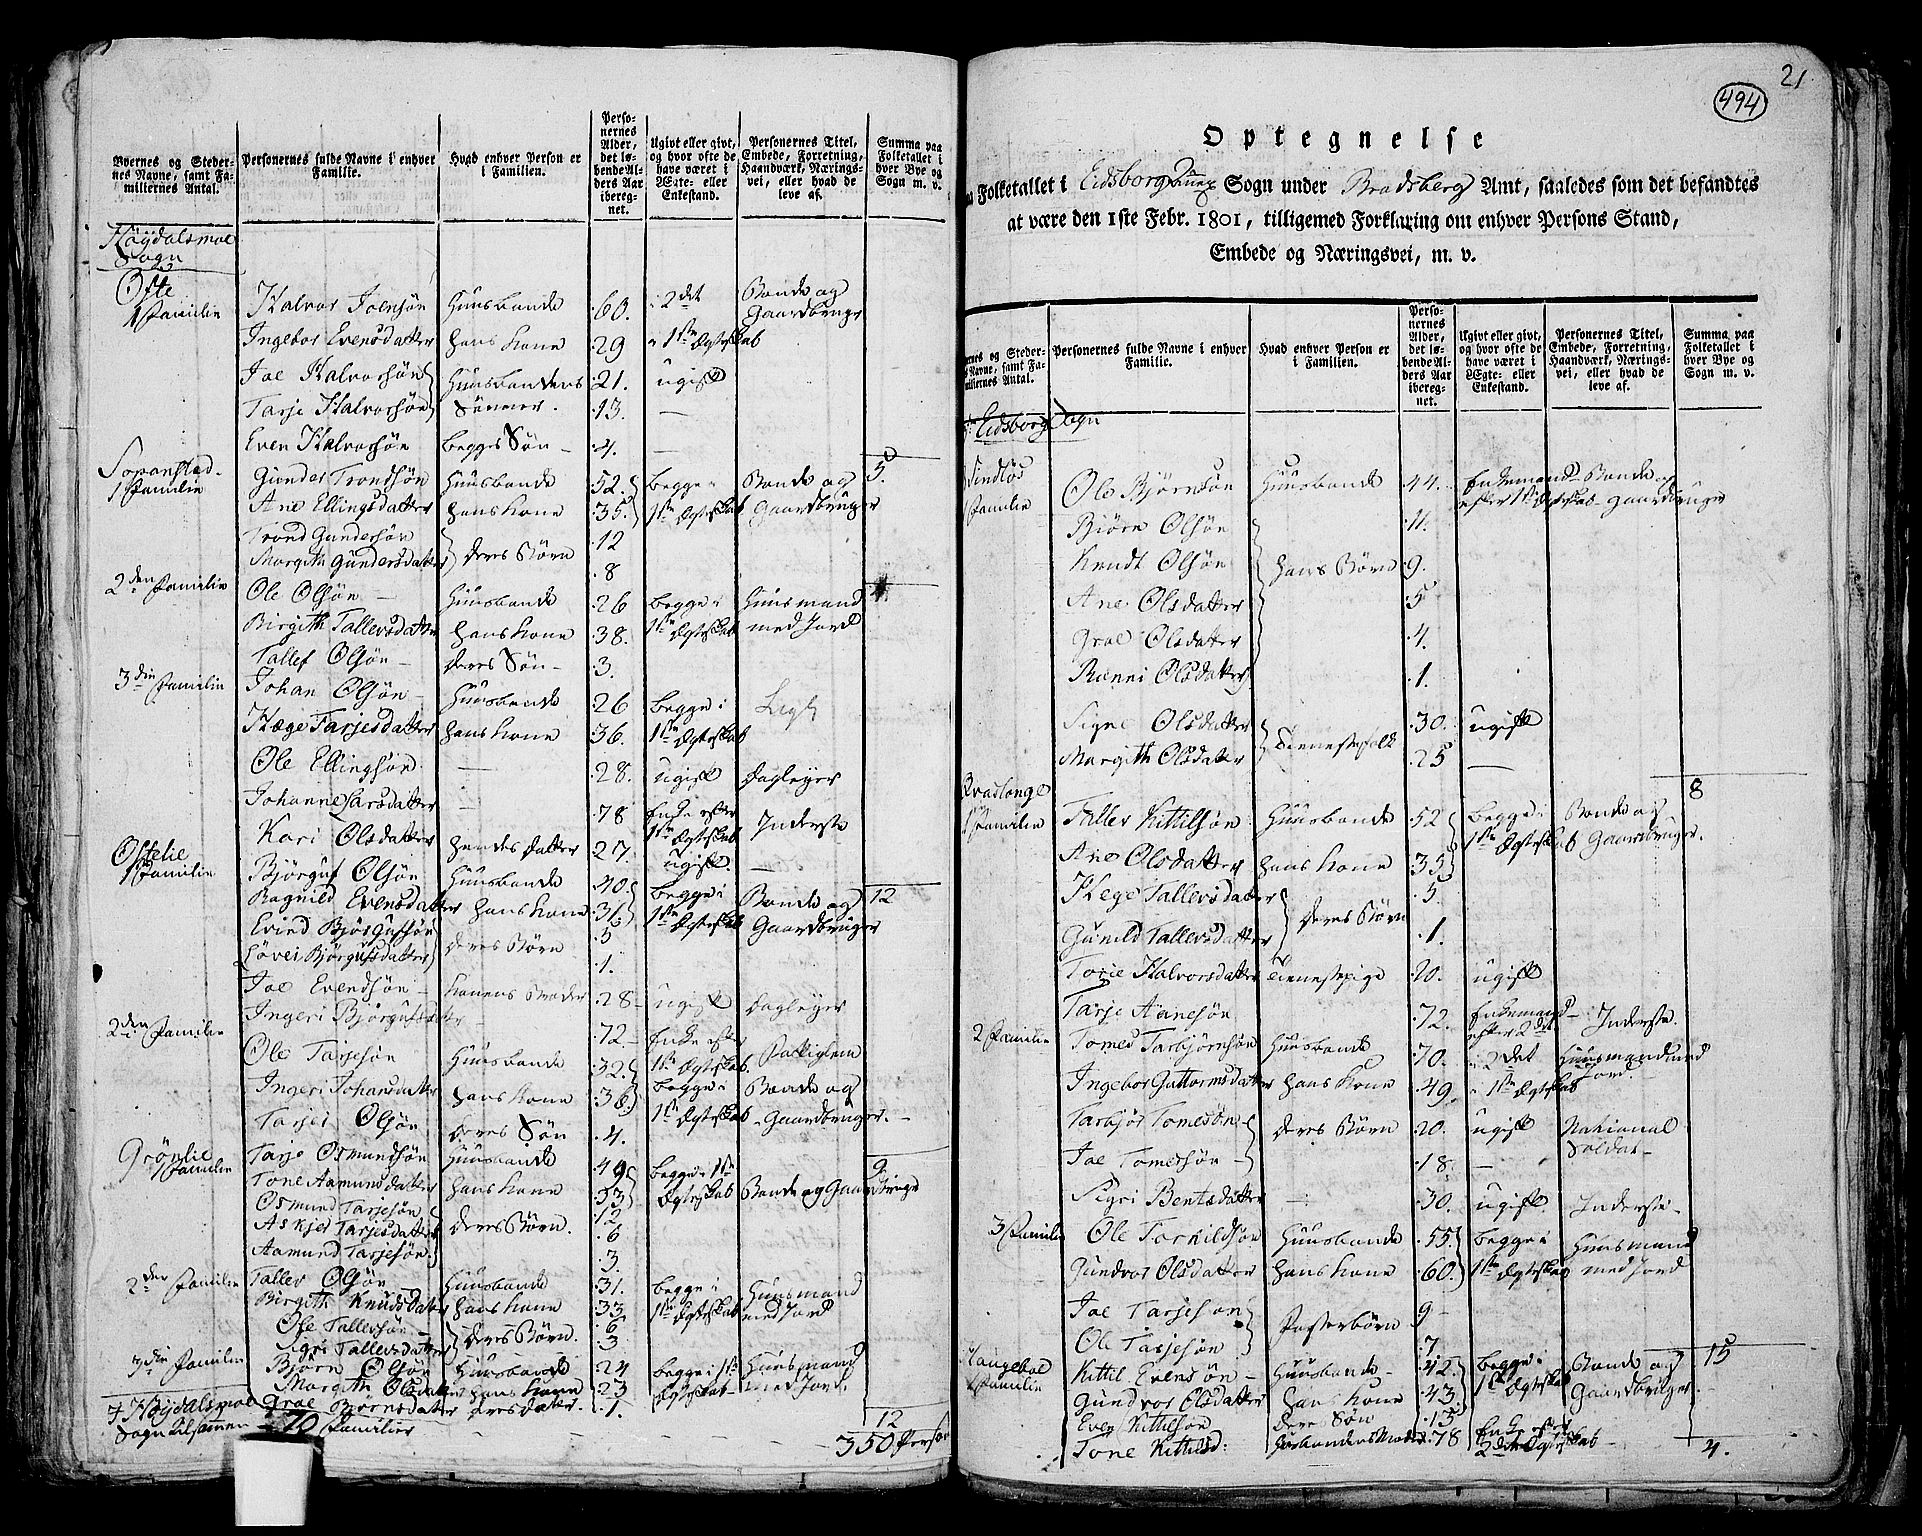 Byernes og Steder-
nes Navne, samt Fa-
miliernes Antal.
Personernes fulde Navne i enhver
Familie.
Hvad enhver Person er
i Familien.
Perso-
nernes
Alder,
det lø-
bende Al-
ders Aar
ibereg-
net.
Ugivt eller givt,
og hvor ofte de
have været i
Ægte- eller
Enkestand.
Personernes Titel,
Embede, Forretning,
Haandværk, Nærings-
vei, eller hvad de
leve af.
Summa paa
Folketallet i
hver Bye og
Sogn m. v.
Høydalsmoe
Sogn
Ofte
1 Familie Halvor Joensøn Huusbonde 60. i 2det Bonde og
Gaardbruger
Ingebor Evensdatter hans Kone 29 i 1ste Ægteskab
Joe Halvorsøn Huusbondens 21. ugift
Tarje Halvorsøn Sønner. 13. —
Even Halvorsøn begges Søn 4. — 5.
1 Familie Gunder Trondsøn Huusbonde 52. begge i Bonde og
Ane Ellingsdatter hans Kone 35. 1ste Ægteskab Gaardbruger
Trond Gundersøn 12
Margith Gundersdatter deres Børn 8
2den Familie Ole Olsøn — Huusbonde 26 begge i Huusmand
Birgith Tallevsdatter hans Kone 38. 1ste Ægteskab med Jord
Tallef Olsøn — deres Søn — 3.
3die Familie Johan Olsøn — Huusbonde 26 begge i
Hæge Tarjesdatter hans Kone 36. 1ste Ægteskab
Ole Ellingsøn — 28. ugift Dagleyer
Johanne Larsdatter — 78 Enke efter
1ste Ægteskab Inderste
Kari Olsdatter hendes Datter 27. ugift. — 12
Oftelie
1 Familie Bjørguf Olsøn Huusbonde 40. begge i Bonde og
Ragnild Evensdatter hans Kone 31. 1ste Ægteskab Gaardbruger
Evind Bjørgufsøn 5
Løvei Bjørgufsdatter deres Børn 1.
Joe Evendsøn — Konens Broder 28 — ugift Dagleyer
Ingeri Bjørgufsdatter — 72. — Enke efter
1ste Ægteskab
2den Familie Ole Tarjesøn Huusbonde 32. begge i Bonde og
Ingeri Johansdatter hans Kone 36. 1ste Ægteskab Gaardbruger. —
Tarjei Olsøn deres Søn 4. 9
Grønlie
1 Familie Tarje Osmundsøn Huusbonde 49 begge i 1ste
Tone Aamundsdatter hans Kone 33 Ægteskab Bonde og Gaardbruger
Osmund Tarjesøn 12
Askjer Tarjesdatter deres Børn. 6
Aamund Tarjesøn 3.
2den Familie Tallev Olsøn Huusbonde 31. begge i Huusmand
Birgith Knudsdatter hans Kone 33 1ste Ægteskab med Jord
Ole Tallevsøn — 6
Sigri Tallevsdatter deres Børn. 3
3die Familie Bjørn Olsøn Huusbonde 24 begge i 1ste Huusmand
Margith Olsdatter hans Kone 23 Ægteskab med Jord.
Groe Bjørnsdatter deres Datter. 1. 12
Høydalsmoe
Sogn tilsammen 70 Familier — 350 Personer
21
494
Optegnelse
Folketallet i Eidsborg Annex Sogn under Bradsberg Amt, saaledes som det befandtes
at være den 1ste Febr. 1801, tilligemed Forklaring om enhver Persons Stand,
Embede og Næringsvei, m. v.
og Steder-
Navne, samt Fa-
miliernes Antal.
Personernes fulde Navne i enhver
Familie.
Hvad enhver Person er
i Familien.
Perso-
nernes
Alder,
det lø-
bende Al-
ders Aar
ibereg-
net.
Ugivt eller givt,
og hvor ofte de
have været i
Ægte- eller
Enkestand.
Personernes Titel,
Embede, Forretning,
Haandværk, Nærings-
vei, eller hvad de
leve af.
Summa paa
Folketallet i
hver Bye og
Sogn m. v.
Eidsborg Sogn
1 Familie Ole Bjørnsøn Huusbonde 44. Enkemand Bonde og
efter 1ste Ægteskab Gaardbruger
Biørn Olsøn 11.
Knudt Olsøn hans Børn 9.
Ane Olsdatter 5
Groe Olsdatter 4.
Rønni Olsdatter 1.
Signe Olsdatter 30. ugift
Margith Olsdatter Tienestefolk 25 — 8
1 Familie Tallev Kittilsøn Huusbonde 52 begge i Bonde og
Ane Olsdatter hans Kone 35 1ste Ægteskab Gaardbruger.
Hege Tallevsdatter 5
Gunild Tallevsdatter deres Børn 1.
Torje Halvorsdatter Tienestepige 20. ugift
Tarje Aanesøn 72. Enkemand
efter 2det — Inderste.
2 Familie Tomed Tarbjørnsøn Huusbonde 70. i 2det Huusmand med
Jord.
Ingebor Guttormsdatter hans Kone 49. i 1ste Ægteskab
Tarbjør Tomesøn deres Børn 20. ugift National
Soldat —
Joe Tomesøn — 18. —
Sigri Bentsdatter — 30. ugift. Inderste —
3 Familie Ole Torkildsøn Huusbonde 55. begge i Huusmand
Gundvor Olsdatter hans Kone 60. 1ste Ægteskab med Jord
Joe Tarjesøn Fosterbørn 9 —
Ole Tarjesøn 7 15
Haugeboe
1 Familie Kittil Evensøn — Huusbonde — 42. begge i Bonde og
Gundvor Olsdatter hans Kone 43. 1ste Ægteskab Gaardbruger. —
Even Kittilsøn deres Søn 13.
Tone Kittilsd: Husbondens Moder 78 Enke efter
2det Ægteskab — 4.